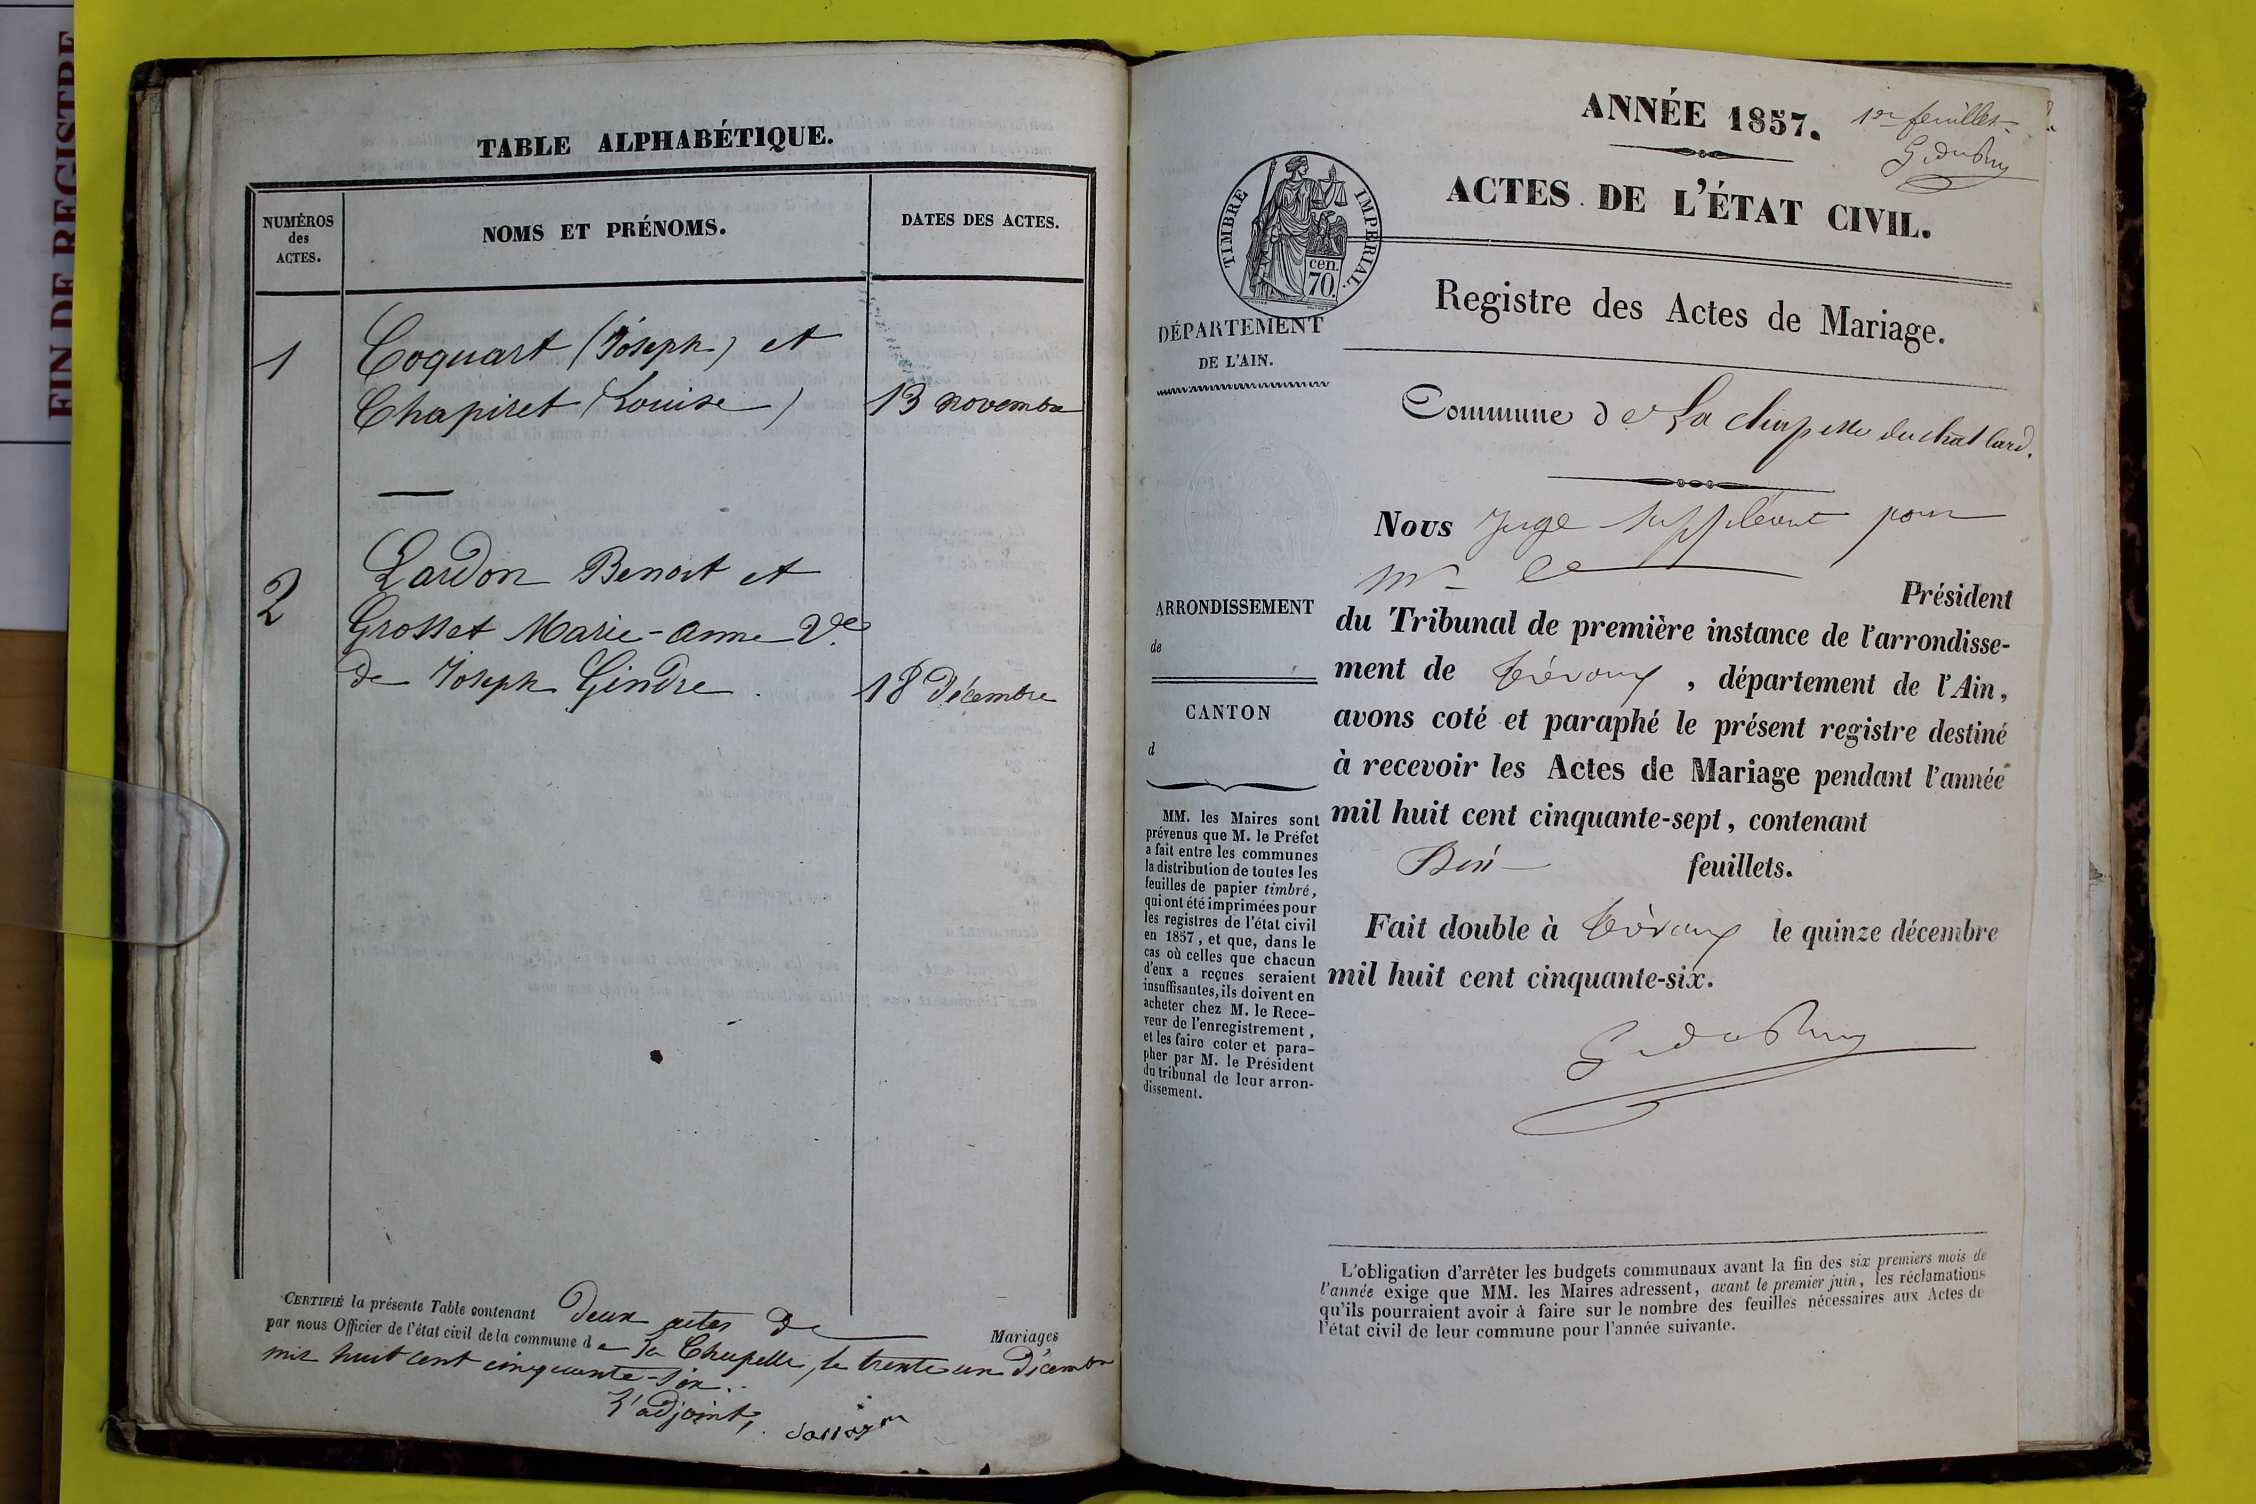 FIN DE REGISTRE
TABLE ALPHABÉTIQUE.
NUMÉROS
des
ACTES.
NOMS ET PRÉNOMS.
DATES DES ACTES.
1
Coquart (Joseph) et
Chapiret (Louise)
13 novembre
2
Lardon Benoit et
Grosset Marie-anne Vve
de Joseph Gindre.
18 Décembre
CERTIFIÉ la présente Table contenant deux actes de Mariages
par nous Officier de l'état civil de la commune de La Chapelle, le trente un Décembre
mil huit cent cinquante-six.
L'adjoint,
ANNÉE 1857.
1er feuillet
ACTES DE L'ÉTAT CIVIL.
TIMBRE IMPÉRIAL.
cen.
70.
Registre des Actes de Mariage.
DÉPARTEMENT
DE L'AIN.
Commune de La chapelle du chatlard.
Nous Juge suppléant pour
Mr le Président
du Tribunal de première instance de l'arrondisse-
ment de trévoux, département de l'Ain,
avons coté et paraphé le présent registre destiné
à recevoir les Actes de Mariage pendant l'année
mil huit cent cinquante-sept, contenant
feuillets.
Fait double à trévoux le quinze décembre
mil huit cent cinquante-six.
ARRONDISSEMENT
de
CANTON
d
MM. les Maires sont
prévenus que M. le Préfet
a fait entre les communes
la distribution de toutes les
feuilles de papier timbré,
qui ont été imprimées pour
les registres de l'état civil
en 1857, et que, dans le
cas où celles que chacun
d'eux a reçues seraient
insuffisantes, ils doivent en
acheter chez M. le Rece-
veur de l'enregistrement,
et les faire coter et para-
pher par M. le Président
du tribunal de leur arron-
dissement.
L'obligation d'arrêter les budgets communaux avant la fin des six premiers mois de
l'année exige que MM. les Maires adressent, avant le premier juin, les réclamations
qu'ils pourraient avoir à faire sur le nombre des feuilles nécessaires aux Actes de
l'état civil de leur commune pour l'année suivante.